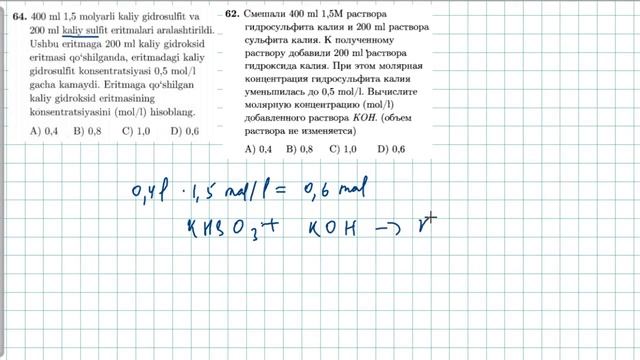 64. 400 ml 1,5 molyarli kaliy gidrosulfit va
200 ml kaliy sulfit eritmalari aralashtirildi.
Ushbu eritmaga 200 ml kaliy gidroksid
eritmasi qo‘shilganda, eritmadagi kaliy
gidrosulfit konsentratsiyasi 0,5 mol/l
gacha kamaydi. Eritmaga qo‘shilgan
kaliy gidroksid eritmasining
konsentratsiyasini (mol/l) hisoblang.
A) 0,4 B) 0,8 C) 1,0 D) 0,6
62. Смешали 400 ml 1,5M раствора
гидросульфита калия и 200 ml раствора
сульфита калия. К полученному
раствору добавили 200 ml раствора
гидроксида калия. При этом молярная
концентрация гидросульфита калия
уменьшилась до 0,5 mol/l. Вычислите
молярную концентрацию (mol/l)
добавленного раствора KOH. (объем
раствора не изменяется)
A) 0,4 B) 0,8 C) 1,0 D) 0,6
0,4l · 1,5 mol/l = 0,6 mol
KHSO3 + KOH →